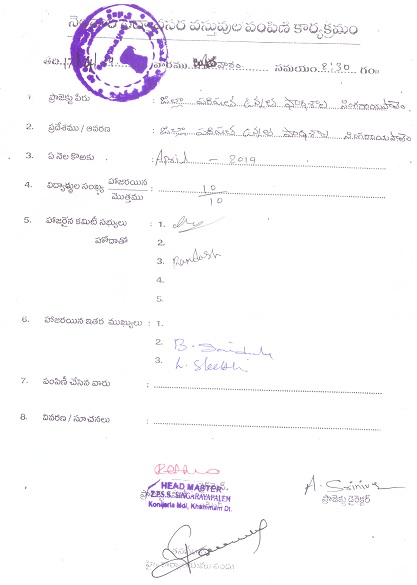 నిత్యావసర వస్తువుల పంపిణీ కార్యక్రమం
వారము సమయం 8:30 గం॥
1 ప్రాజెక్టు పేరు : జిల్లా పరిషత్ ఉన్నత పాఠశాల సింగరాయపాలెం
2. ప్రదేశము / ఆవరణ : జిల్లా పరిషత్ ఉన్నత పాఠశాల సింగరాయపాలెం
3. ఏ నెల కొఱకు : April - 2019
4. విద్యార్థుల సంఖ్య హాజరయిన / మొత్తము : 10/10
5. హాజరైన కమిటీ సభ్యులు : 1.
హోదాతో 2.
3.
4.
5.
6. హాజరయిన ఇతర ముఖ్యులు : 1.
2. B.
3.
7. పంపిణీ చేసిన వారు :
8. వివరణ / సూచనలు :
HEAD MASTER
Z.P.S.S. SINGARAYAPALEM
Konijerla Mdl, Khammam Dt.
A. Srinivas
ప్రాజెక్టు డైరెక్టర్